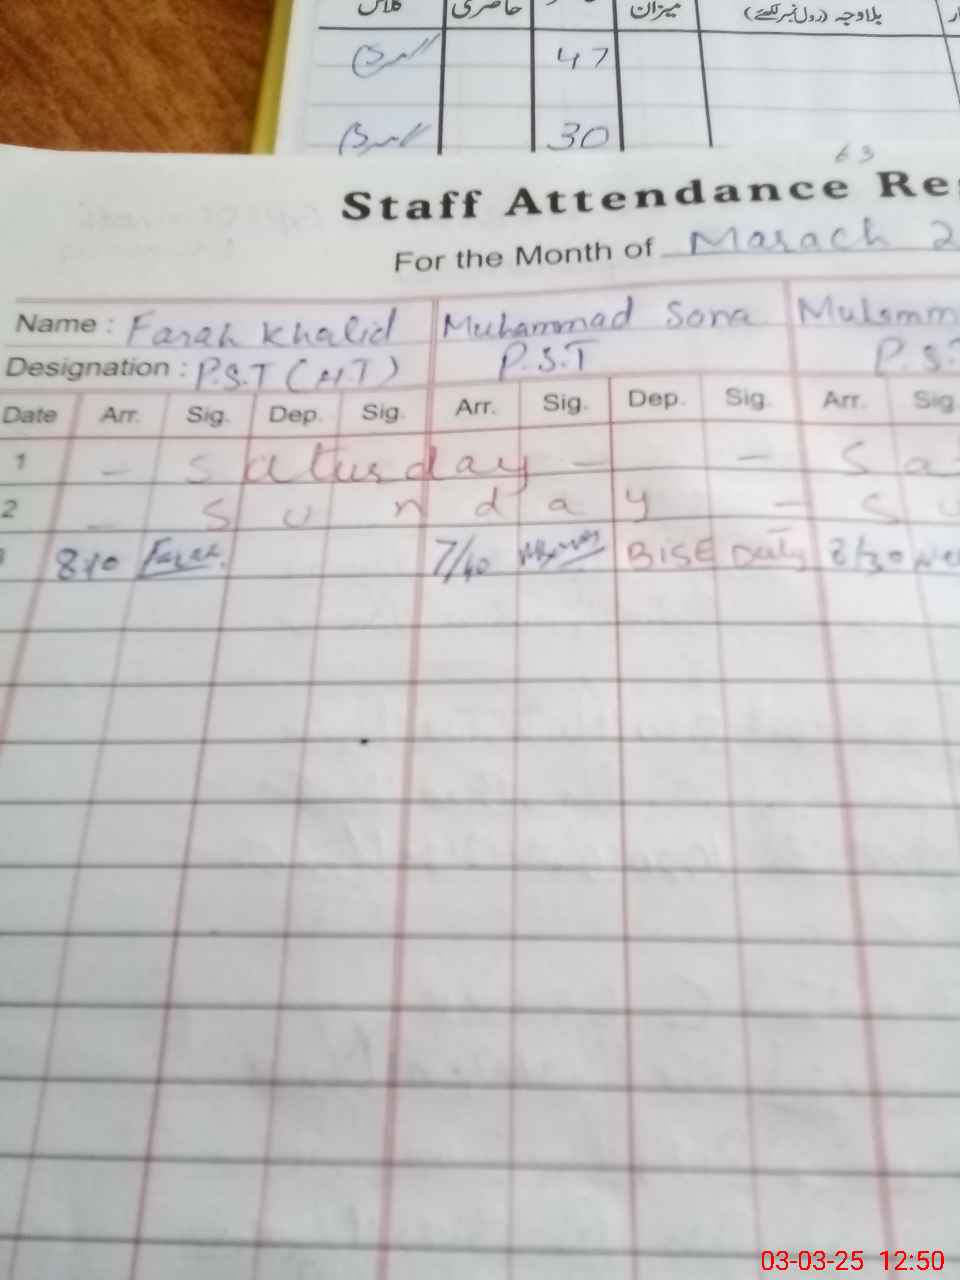 کلاس حاضری میزان بلاوجہ (رول نمبر لکھئے)
47
30
63
Staff Attendance Re
For the Month of Marach 2
Name : Farah Khalid Muhammad Sona
Designation : P.S.T (HT) P.S.T P.S.
Date Arr. Sig. Dep. Sig. Arr. Sig. Dep. Sig. Arr. Sig.
1 - Saturday - - Sa
2 - Sunday - Su
8/10 Farah 7/40 BISE Duty 8/30
03-03-25 12:50